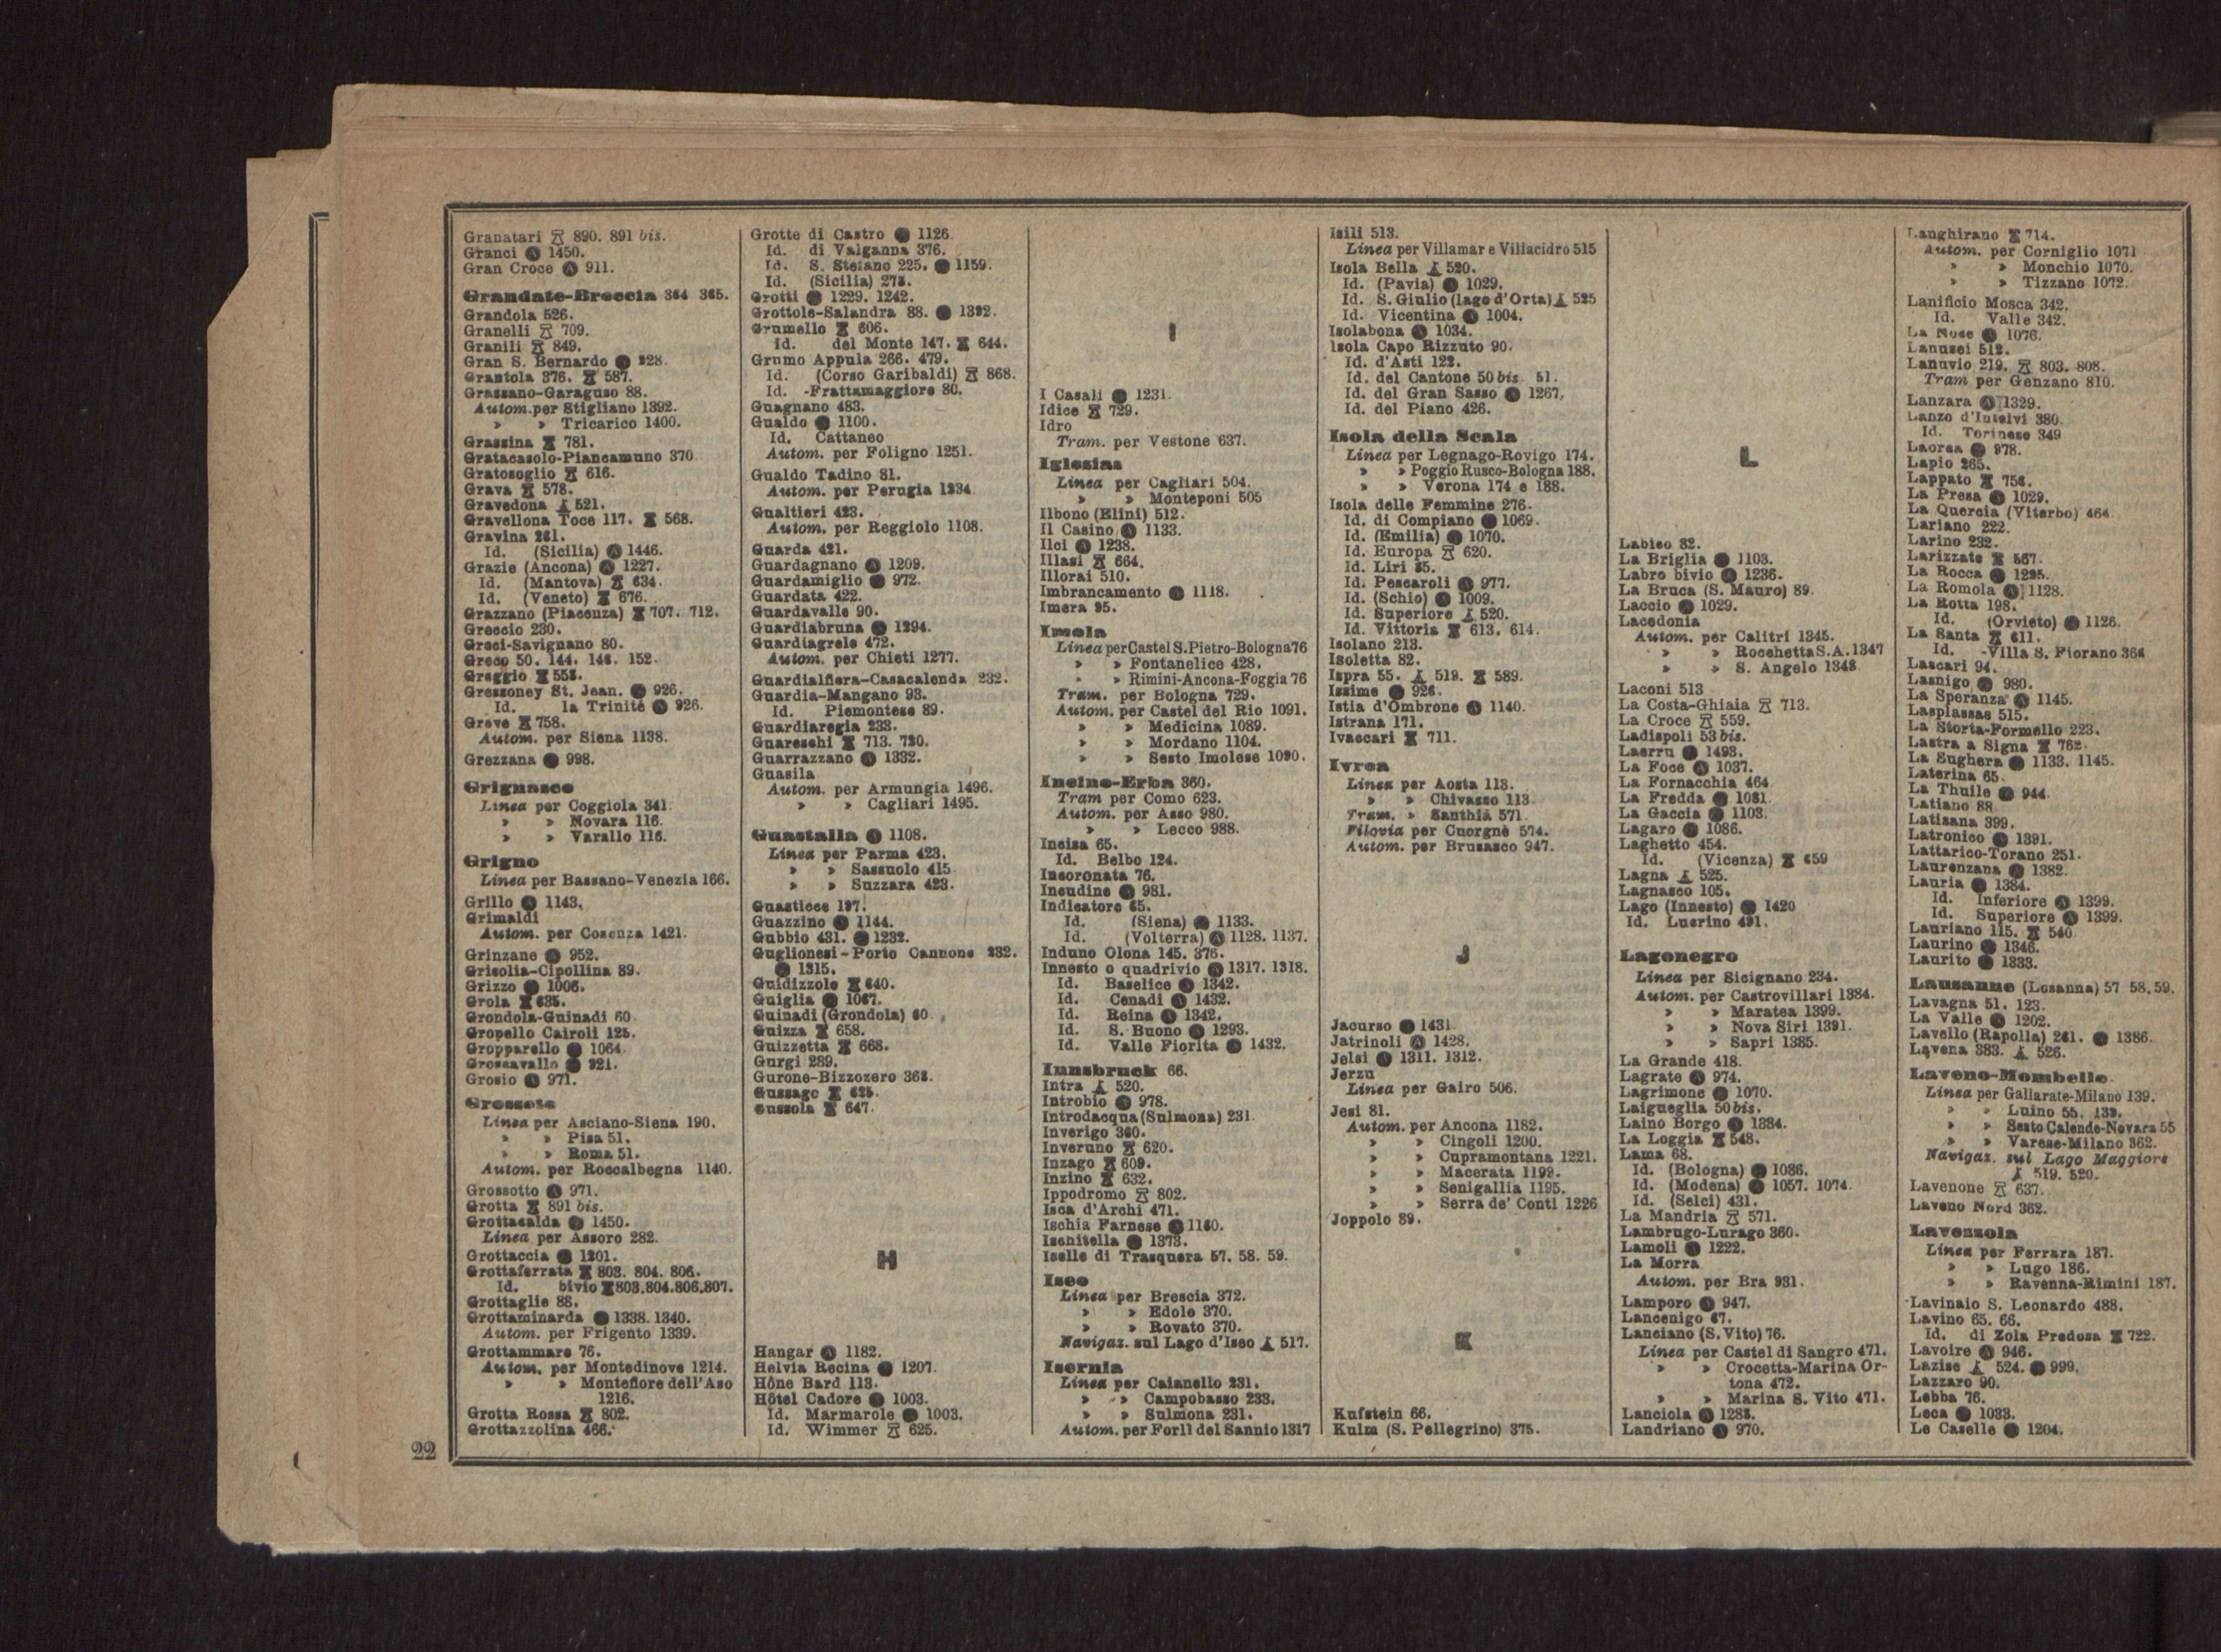 Granatari 890. 891 bis.
Granci 1450.
Gran Croce 911.
Grandate-Breccia 364 365.
Grandola 526.
Granelli 709.
Granili 849.
Gran S. Bernardo 928.
Grantola 376. 587.
Grassano-Garaguso 88.
Autom. per Stigliano 1392.
» » Tricarico 1400.
Grassina 781.
Gratacasolo-Piancamuno 370
Gratosoglio 616.
Grava 578.
Gravedona 521.
Gravellona Toce 117. 568.
Gravina 261.
Id. (Sicilia) 1446.
Grazie (Ancona) 1227.
Id. (Mantova) 634.
Id. (Veneto) 676.
Grazzano (Piacenza) 707. 712.
Greccio 230.
Greci-Savignano 80.
Greco 50. 144. 146. 152.
Greggio 558.
Gressoney St. Jean. 926.
Id. la Trinité 926.
Greve 758.
Autom. per Siena 1138.
Grezzana 998.
Grignasco
Linea per Coggiola 341.
» » Novara 116.
» » Varallo 116.
Grigno
Linea per Bassano-Venezia 166.
Grillo 1143.
Grimaldi
Autom. per Cosenza 1421.
Grinzane 952.
Grisolia-Cipollina 89.
Grizzo 1006.
Grola 635.
Grondola-Guinadi 60
Gropello Cairoli 125.
Gropparello 1064
Grossavallo 921.
Grosio 971.
Grosseto
Linea per Asciano-Siena 190.
» » Pisa 51.
» » Roma 51.
Autom. per Roccalbegna 1140.
Grossotto 971.
Grotta 891 bis.
Grottacalda 1450.
Linea per Assoro 282.
Grottaccia 1201.
Grottaferrata 803. 804. 806.
Id. bivio 803.804.806.807.
Grottaglie 88.
Grottaminarda 1338. 1340.
Autom. per Frigento 1339.
Grottammare 76.
Autom. per Montedinove 1214.
» » Montefiore dell'Aso
1216.
Grotta Rossa 802.
Grottazzolina 466.
Grotte di Castro 1126.
Id. di Valganna 376.
Id. S. Stefano 225. 1159.
Id. (Sicilia) 278.
Grotti 1229. 1242.
Grottole-Salandra 88. 1392.
Grumello 606.
Id. del Monte 147. 644.
Grumo Appula 266. 479.
Id. (Corso Garibaldi) 868.
Id. -Frattamaggiore 80.
Guagnano 483.
Gualdo 1100.
Id. Cattaneo
Autom. per Foligno 1251.
Gualdo Tadino 81.
Autom. per Perugia 1234.
Gualtieri 423.
Autom. per Reggiolo 1108.
Guarda 421.
Guardagnano 1209.
Guardamiglio 972.
Guardata 422.
Guardavalle 90.
Guardiabruna 1294.
Guardiagrele 472.
Autom. per Chieti 1277.
Guardialfiera-Casacalenda 232.
Guardia-Mangano 93.
Id. Piemontese 89.
Guardiaregia 233.
Guareschi 713. 720.
Guarrazzano 1332.
Guasila
Autom. per Armungia 1496.
» » Cagliari 1495.
Guastalla 1108.
Linea per Parma 423.
» » Sassuolo 415
» » Suzzara 423.
Guasticce 197.
Guazzino 1144.
Gubbio 431. 1232.
Guglionesi-Porto Cannone 232.
1315.
Guidizzolo 640.
Guiglia 1067.
Guinadi (Grondola) 60
Guizza 658.
Guizzetta 668.
Gurgi 289.
Gurone-Bizzozero 363.
Gussago 625.
Gussola 647.
H
Hangar 1182.
Helvia Recina 1207.
Hône Bard 113.
Hôtel Cadore 1003.
Id. Marmarole 1003.
Id. Wimmer 625.
I
I Casali 1231.
Idice 729.
Idro
Tram. per Vestone 637.
Iglesias
Linea per Cagliari 504.
» » Monteponi 505
Ilbono (Elini) 512.
Il Casino 1133.
Ilci 1238.
Illasi 664.
Illorai 510.
Imbrancamento 1118.
Imera 95.
Imola
Linea per Castel S.Pietro-Bologna 76
» » Fontanelice 428.
» » Rimini-Ancona-Foggia 76
Tram. per Bologna 729.
Autom. per Castel del Rio 1091.
» » Medicina 1089.
» » Mordano 1104.
» » Sesto Imolese 1090.
Incino-Erba 360.
Tram per Como 623.
Autom. per Asso 980.
» » Lecco 988.
Incisa 65.
Id. Belbo 124.
Incoronata 76.
Incudine 981.
Indicatore 65.
Id. (Siena) 1133.
Id. (Volterra) 1128. 1137.
Induno Olona 145. 376.
Innesto o quadrivio 1317. 1318.
Id. Baselice 1342.
Id. Cenadi 1432.
Id. Reina 1342.
Id. S. Buono 1293.
Id. Valle Fiorita 1432.
Innsbruck 66.
Intra 520.
Introbio 978.
Introdacqua (Sulmona) 231
Inverigo 360.
Inveruno 620.
Inzago 609.
Inzino 632.
Ippodromo 802.
Isca d'Archi 471.
Ischia Farnese 1160.
Ischitella 1373.
Iselle di Trasquera 57. 58. 59.
Iseo
Linea per Brescia 372.
» » Edolo 370.
» » Rovato 370.
Navigaz. sul Lago d'Iseo 517.
Isernia
Linea per Caianello 231.
» » Campobasso 233.
» » Sulmona 231.
Autom. per Forlì del Sannio 1317
Isili 513.
Linea per Villamar e Villacidro 515
Isola Bella 520.
Id. (Pavia) 1029.
Id. S. Giulio (lago d'Orta) 525
Id. Vicentina 1004.
Isolabona 1034.
Isola Capo Rizzuto 90.
Id. d'Asti 122.
Id. del Cantone 50 bis 51.
Id. del Gran Sasso 1267.
Id. del Piano 426.
Isola della Scala
Linea per Legnago-Rovigo 174.
» » Poggio Rusco-Bologna 188.
» » Verona 174 e 188.
Isola delle Femmine 276.
Id. di Compiano 1069.
Id. (Emilia) 1070.
Id. Europa 620.
Id. Liri 85.
Id. Pescaroli 977.
Id. (Schio) 1009.
Id. Superiore 520.
Id. Vittoria 613. 614.
Isolano 213.
Isoletta 82.
Ispra 55. 519. 589.
Issime 926.
Istia d'Ombrone 1140.
Istrana 171.
Ivaccari 711.
Ivrea
Linea per Aosta 113.
» » Chivasso 113
Tram. » Santhià 571
Filovia per Cuorgnè 574.
Autom. per Brusasco 947.
J
Jacurso 1431.
Jatrinoli 1428.
Jelsi 1311. 1312.
Jerzu
Linea per Gairo 506.
Jesi 81.
Autom. per Ancona 1182.
» » Cingoli 1200.
» » Cupramontana 1221.
» » Macerata 1199.
» » Senigallia 1195.
» » Serra de' Conti 1226
Joppolo 89.
K
Kufstein 66.
Kulm (S. Pellegrino) 375.
L
Labico 82.
La Briglia 1103.
Labro bivio 1236.
La Bruca (S. Mauro) 89
Laccio 1029.
Lacedonia
Autom. per Calitri 1345.
» » Rocchetta S.A. 1347
» » S. Angelo 1348
Laconi 513
La Costa-Ghiaia 713.
La Croce 559.
Ladispoli 53 bis.
Laerru 1493.
La Foce 1037.
La Fornacchia 464
La Fredda 1081
La Gaccia 1103.
Lagaro 1086.
Laghetto 454.
Id. (Vicenza) 659
Lagna 525.
Lagnasco 105.
Lago (Innesto) 1420
Id. Lucrino 491.
Lagonegro
Linea per Sicignano 234.
Autom. per Castrovillari 1384.
» » Maratea 1399.
» » Nova Siri 1391.
» » Sapri 1385.
La Grande 418.
Lagrate 974.
Lagrimone 1070.
Laigueglia 50 bis.
Laino Borgo 1384.
La Loggia 548.
Lama 68.
Id. (Bologna) 1086.
Id. (Modena) 1057. 1074.
Id. (Selci) 431.
La Mandria 571.
Lambrugo-Lurago 360.
Lamoli 1222.
La Morra
Autom. per Bra 931.
Lamporo 947.
Lancenigo 67.
Lanciano (S. Vito) 76.
Linea per Castel di Sangro 471.
» » Crocetta-Marina Or-
tona 472.
» » Marina S. Vito 471.
Lanciola 1288.
Landriano 970.
Langhirano 714.
Autom. per Corniglio 1071
» » Monchio 1070.
» » Tizzano 1072.
Lanificio Mosca 342.
Id. Valle 342.
La Nose 1076.
Lanusei 512.
Lanuvio 219. 803. 808.
Tram per Genzano 810.
Lanzara 1329.
Lanzo d'Intelvi 380.
Id. Torinese 349
Laorca 978.
Lapio 265.
Lappato 756.
La Presa 1029.
La Quercia (Viterbo) 464
Lariano 222.
Larino 232.
Larizzate 567.
La Rocca 1295.
La Romola 1128.
La Rotta 198.
Id. (Orvieto) 1126.
La Santa 611.
Id. -Villa S. Fiorano 364
Lascari 94.
Lasnigo 980.
La Speranza 1145.
Lasplassas 515.
La Storta-Formello 223.
Lastra a Signa 762.
La Sughera 1133. 1145.
Laterina 65.
La Thuile 944
Latiano 88
Latisana 399.
Latronico 1391.
Lattarico-Torano 251.
Laurenzana 1382.
Lauria 1384.
Id. Inferiore 1399.
Id. Superiore 1399.
Lauriano 115. 540
Laurino 1346.
Laurito 1333.
Lausanne (Losanna) 57 58. 59.
Lavagna 51. 123.
La Valle 1202.
Lavello (Rapolla) 261. 1386.
Lavena 383. 526.
Laveno-Mombello
Linea per Gallarate-Milano 139.
» » Luino 55. 139.
» » Sesto Calende-Novara 55
» » Varese-Milano 362.
Navigaz. sul Lago Maggiore
519. 520.
Lavenone 637.
Laveno Nord 362.
Lavezzola
Linea per Ferrara 187.
» » Lugo 186.
» » Ravenna-Rimini 187.
Lavinaio S. Leonardo 488.
Lavino 65. 66.
Id. di Zola Predosa 722.
Lavoire 946.
Lazise 524. 999.
Lazzaro 90.
Lebba 76.
Leca 1033.
Le Caselle 1204.
22